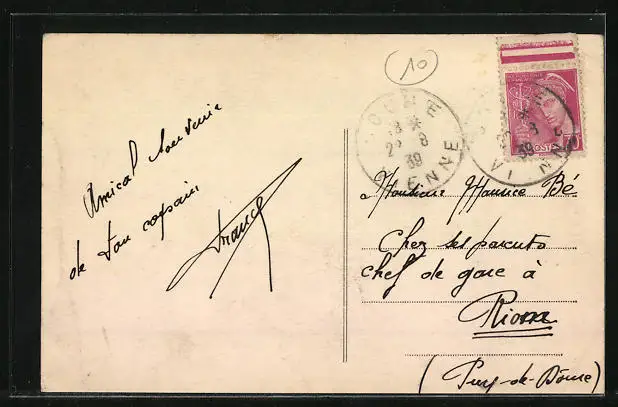 Amical souvenir
de ton copain
France
10
18 *
2 8
39
ENNE
39
POSTES
Monsieur Maurice Bé
Chez ses parents
chef de gare à
Riom
(Puy-de-Dôme)